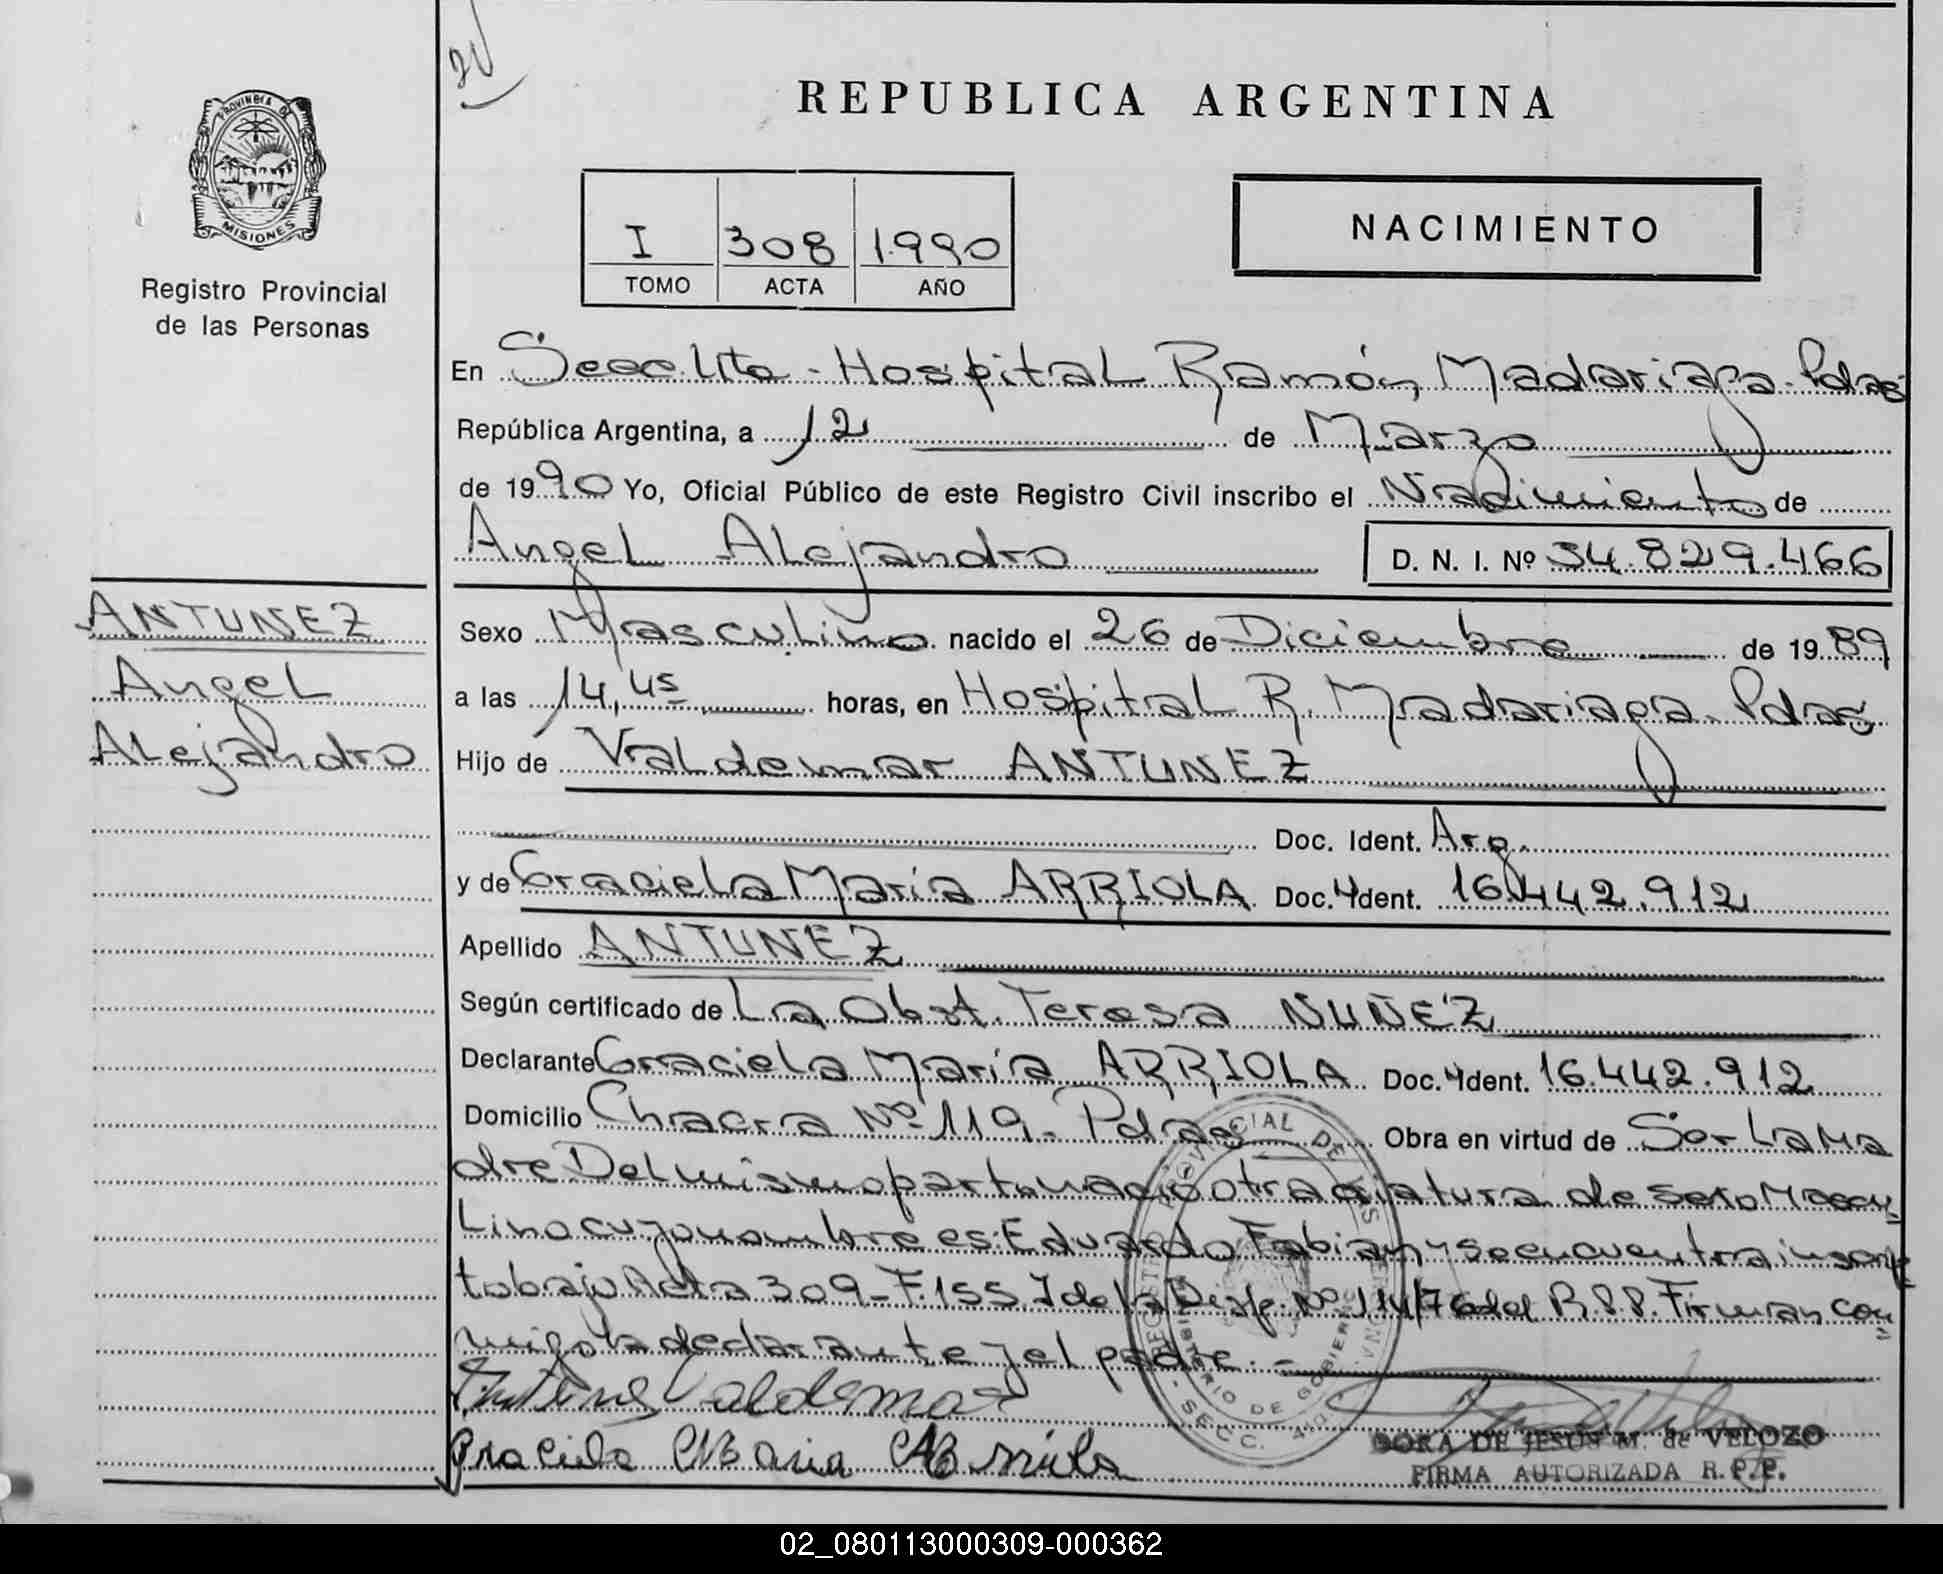 PROVINCIA DE
MISIONES
Registro Provincial
de las Personas
ANTUNEZ
Angel
Alejandro
REPUBLICA ARGENTINA
I 308 1.990
TOMO ACTA AÑO
NACIMIENTO
En Secc. Uta - Hospital Ramón Madariaga - Pdas
República Argentina, a 12 de Marzo
de 1990 Yo, Oficial Público de este Registro Civil inscribo el Nacimiento de
Angel Alejandro D. N. I. Nº 34.829.466
Sexo Masculino nacido el 26 de Diciembre de 1989
a las 14,45 horas, en Hospital R. Madariaga - Pdas
Hijo de Valdemar ANTUNEZ
Doc. Ident. Arg.
y de Graciela María ARRIOLA Doc. Ident. 16.442.912
Apellido ANTUNEZ
Según certificado de La Obst. Teresa NUÑEZ
Declarante Graciela María ARRIOLA Doc. Ident. 16.442.912
Domicilio Chacra Nº 119 - Pdas Obra en virtud de Ser La Ma
dre Del mismo parto nació otra criatura de sexo Mascu
Lino cuyo nombre es: Eduardo Fabian y se encuentra inscrip
to bajo Acta 309 - F. 155 I de la Disp. Nº 114/76 del R.P.P. Firman con
migo la declarante y el padre. -
Antunez Valdemar
Graciela Maria Arriola
DORA DE JESUS M. de VELOZO
FIRMA AUTORIZADA R.P.P.
02_080113000309-000362